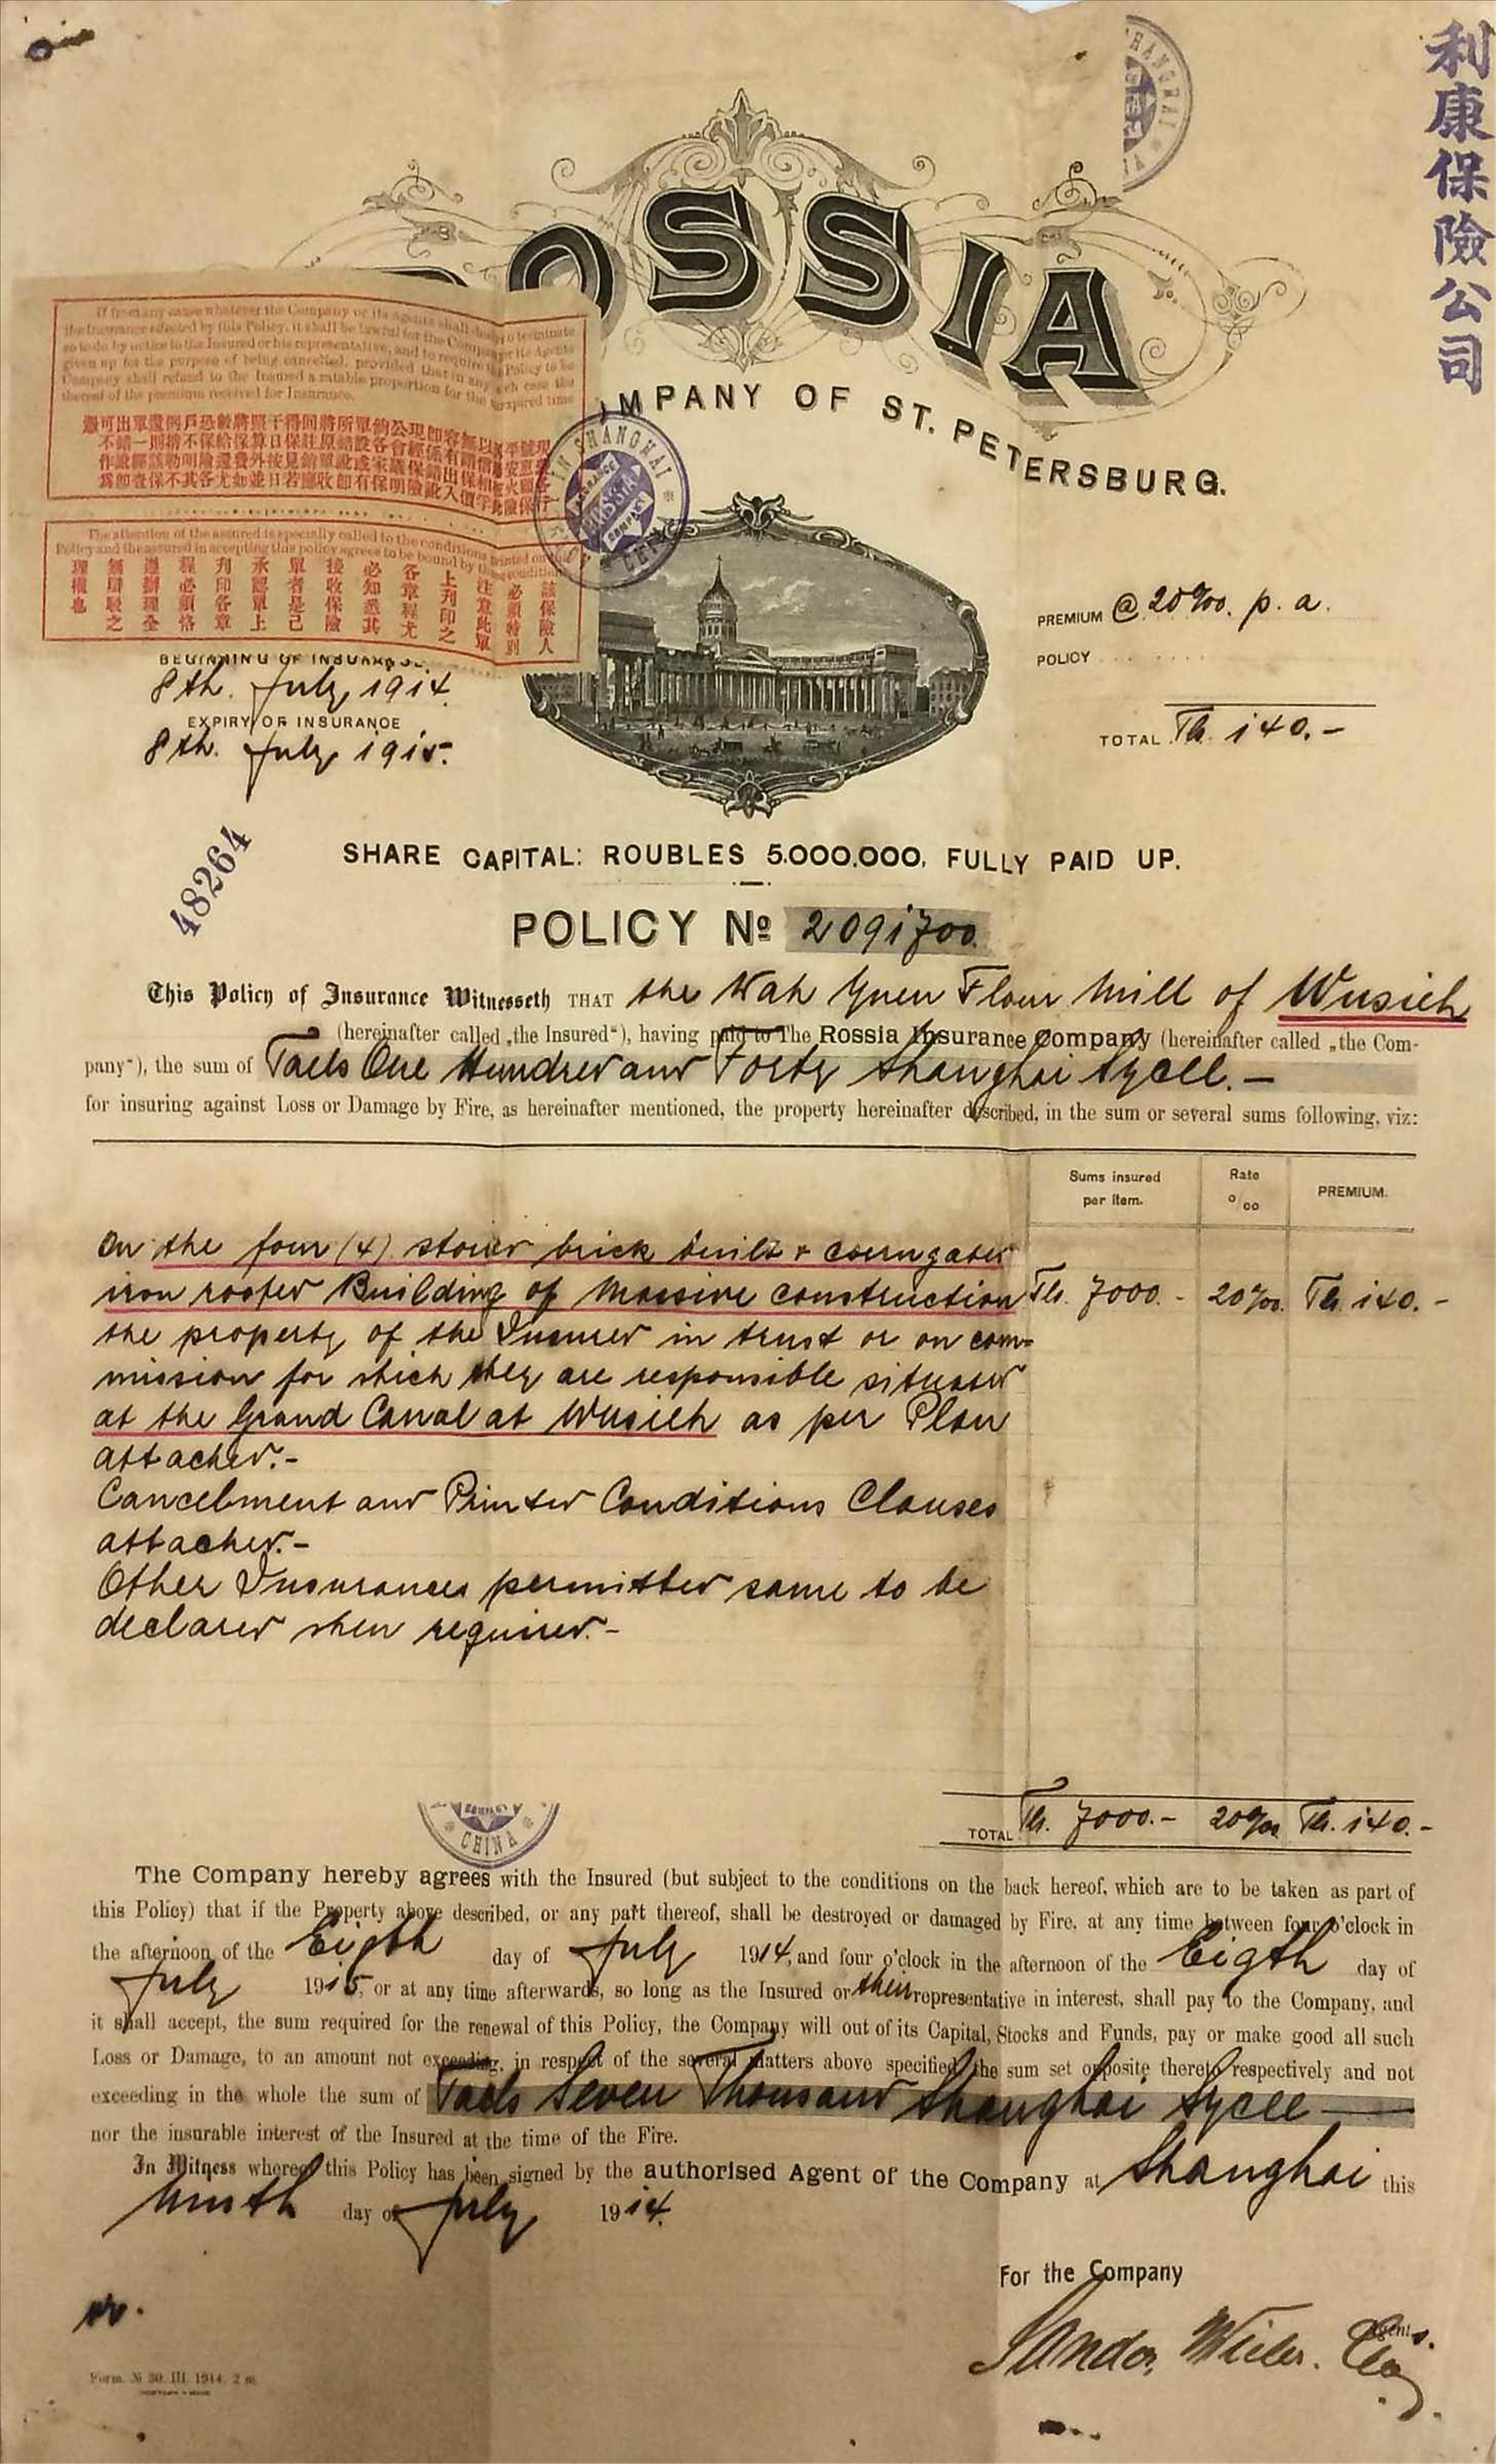 利康保險公司
OSSIA
MPANY OF ST. PETERSBURG.
If from any cause whatever the Company or its Agents shall desire to terminate
the Insurance effected by this Policy, it shall be lawful for the Company or its Agents
so to do by notice to the Insured or his representative, and to require the Policy to be
given up for the purpose of being cancelled, provided that in any such case the
Company shall refund to the Insured a ratable proportion for the unexpired time
thereof of the premium received for Insurance.
The attention of the assured is specially called to the conditions printed on
Policy and the assured in accepting this policy agrees to be bound by the conditions
該保險人
必須特別
注意此單
上列印之
各章程尤
必知悉其
接收保險
單者是己
承認單上
列印各章
程必須恪
遵辦理全
無辯駁之
理權也
IN SHANGHAI
ROSSIA
COMPANY
PREMIUM @ 20‰. p. a.
POLICY . . . . . . . . .
TOTAL Tls. 140.-
BEGINNING OF INSURANCE
8th. July 1914.
EXPIRY OF INSURANCE
8th. July 1915.
48264
SHARE CAPITAL: ROUBLES 5.000.000, FULLY PAID UP.
POLICY No 2091700.
This Policy of Insurance Witnesseth THAT the Wah Yuen Flour Mill of Wusieh
(hereinafter called „the Insured“), having paid to The Rossia Insurance Company (hereinafter called „the Com-
pany“), the sum of Taels One Hundred and Forty Shanghai Sycee. —
for insuring against Loss or Damage by Fire, as hereinafter mentioned, the property hereinafter described, in the sum or several sums following, viz:
Sums insured per item. Rate ‰ PREMIUM.
On the four (4) storied brick built & corrugated
iron roofed Building of Massive construction Tls. 7000.- 20‰. Tls. 140.-
the property of the Insured in trust or on com-
mission for which they are responsible situated
at the Grand Canal at Wusieh as per Plan
attached.-
Cancelment and Printed Conditions Clauses
attached.-
Other Insurances permitted same to be
declared when required.-
COMPANY
CHINA
TOTAL Tls. 7000.- 20‰ Tls. 140.-
The Company hereby agrees with the Insured (but subject to the conditions on the back hereof, which are to be taken as part of
this Policy) that if the Property above described, or any part thereof, shall be destroyed or damaged by Fire, at any time between four o'clock in
the afternoon of the Eigth day of July 1914, and four o'clock in the afternoon of the Eigth day of
July 1915, or at any time afterwards, so long as the Insured or their representative in interest, shall pay to the Company, and
it shall accept, the sum required for the renewal of this Policy, the Company will out of its Capital, Stocks and Funds, pay or make good all such
Loss or Damage, to an amount not exceeding, in respect of the several matters above specified, the sum set opposite thereto respectively and not
exceeding in the whole the sum of Taels Seven Thousand Shanghai Sycee —
nor the insurable interest of the Insured at the time of the Fire.
In Witness whereof this Policy has been signed by the authorised Agent of the Company at Shanghai this
Ninth day of July 1914.
For the Company
Sander, Wieler. & Co.
Agents.
Form. № 30. III. 1914. 2 m